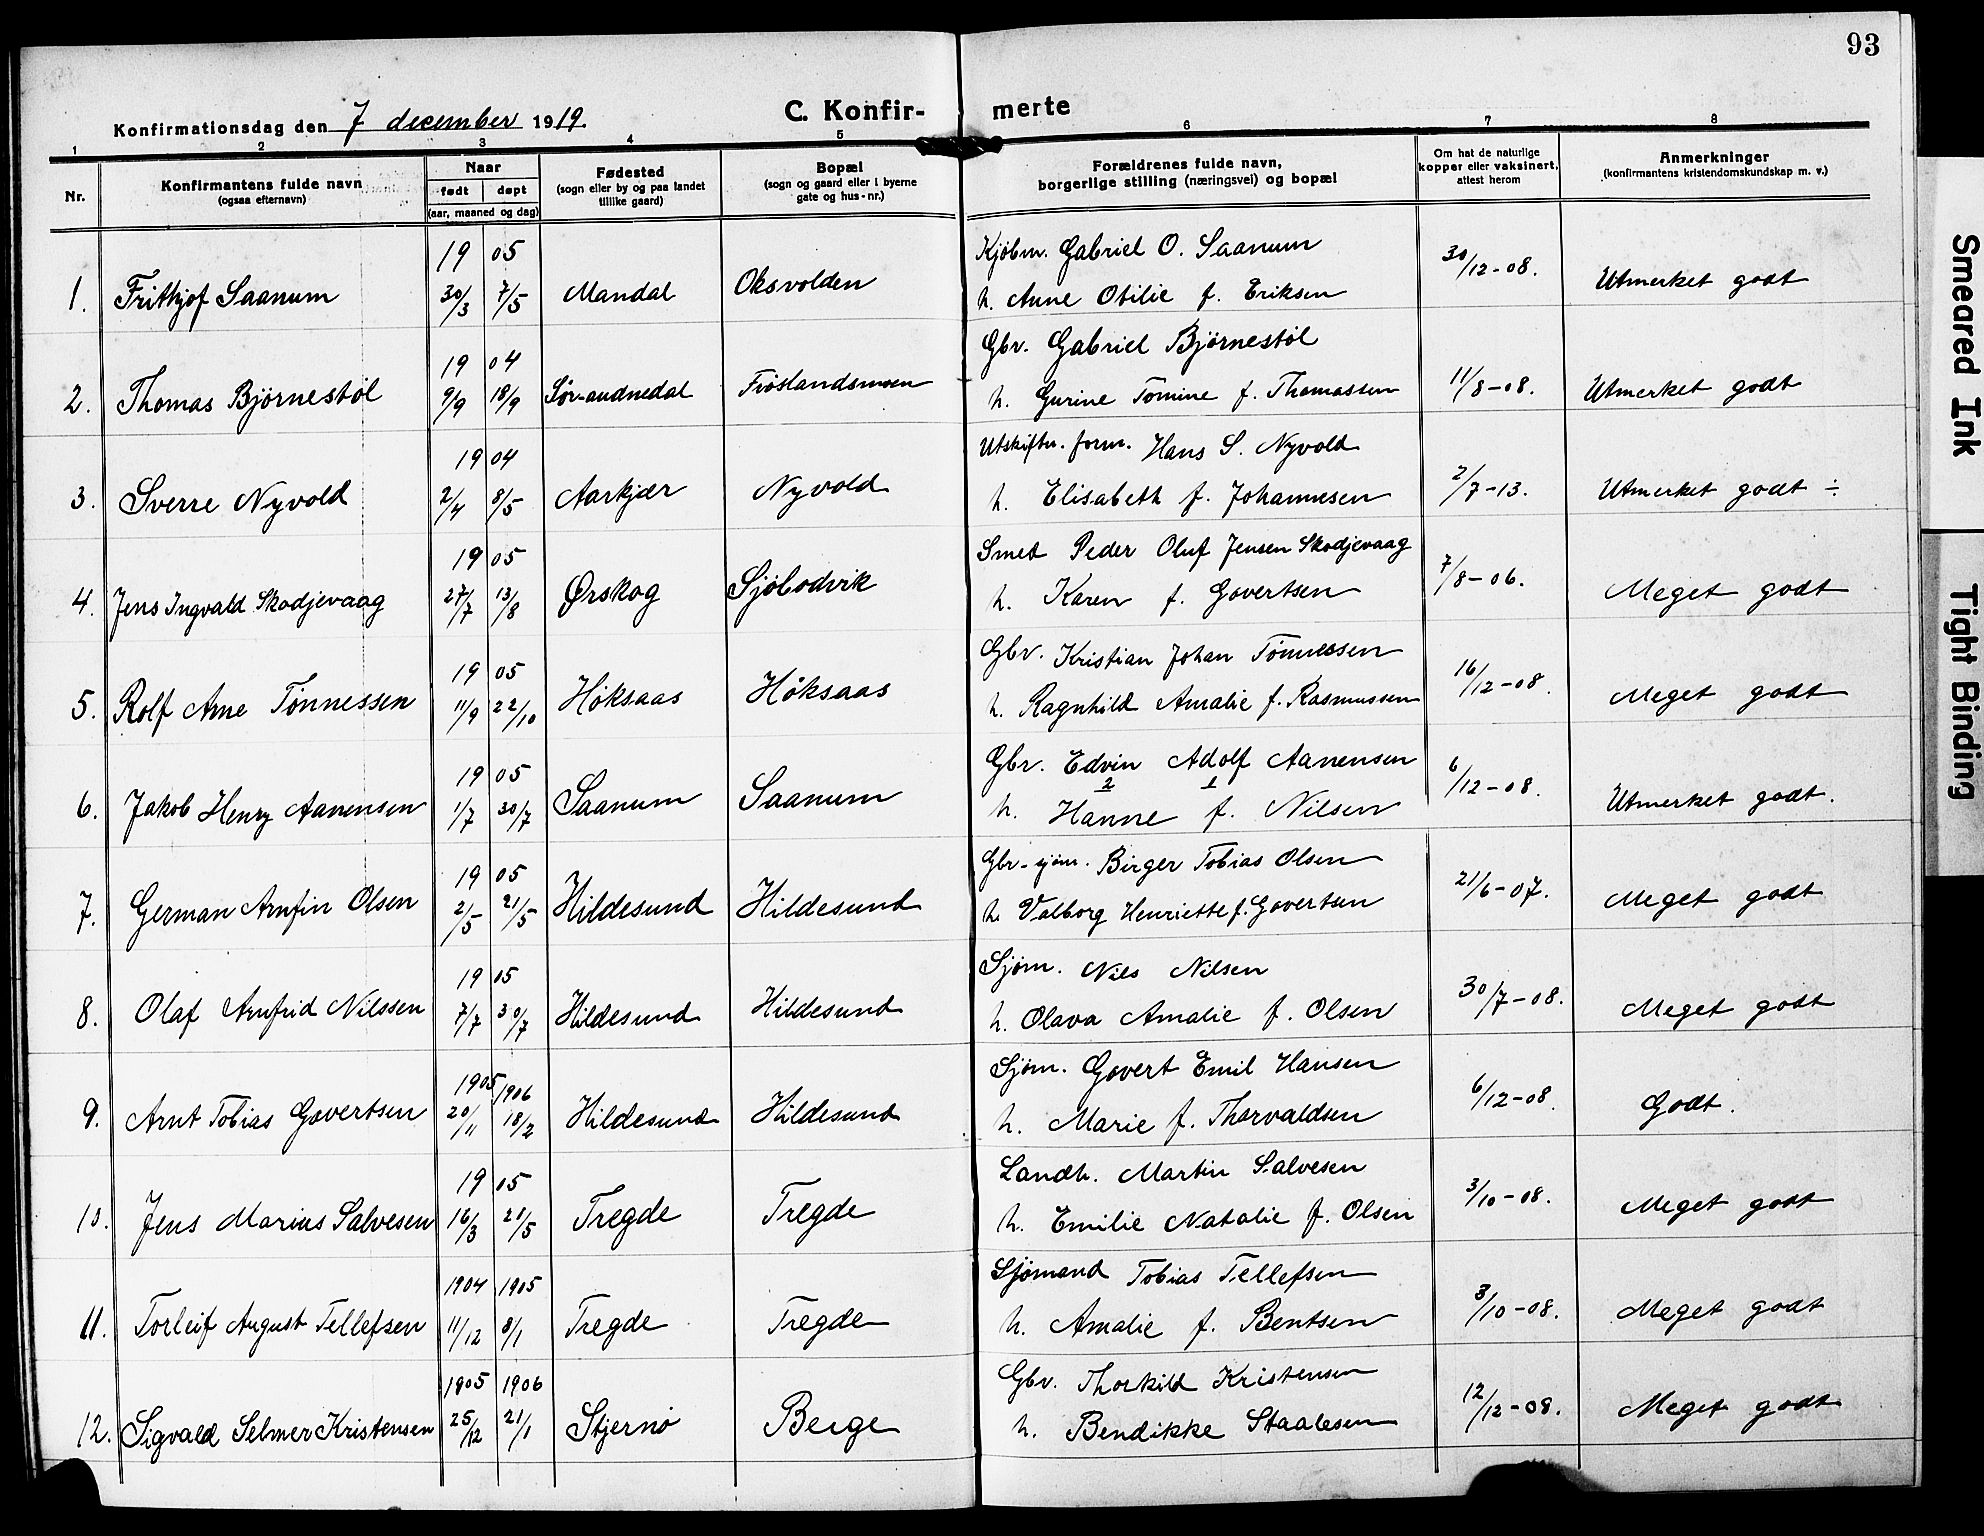 93
C. Konfir- merte
Konfirmationsdag den 7 december 1919.
1 2 3 4 5 6 7 8
Nr.
Konfirmantens fulde navn
(ogsaa efternavn)
Naar
født døpt
(aar, maaned og dag)
Fødested
(sogn eller by og paa landet
tillike gaard)
Bopæl
(sogn og gaard eller i byerne
gate og hus-nr.)
Forældrenes fulde navn,
borgerlige stilling (næringsvei) og bopæl
Om hat de naturlige
kopper eller vaksinert,
attest herom
Anmerkninger
(konfirmantens kristendomskundskap m. v.)
19 05 Kjöbm. Gabriel O. Saanum
1. Frithjof Saanum 30/3 7/5 Mandal Oksvolden h. Anne Otilie f. Eriksen 30/12-08. Utmerket godt
19 04 Gbr. Gabriel Björnestöl
2. Thomas Björnestöl 9/9 18/9 Sör-audnedal h. Gurine Tomine f. Thomassen 11/8-08. Utmerket godt
19 04 Utskiftn. form. Hans S. Nyvold
3. Sverre Nyvold 2/4 8/5 Aarkjær Nyvold h. Elisabeth f. Johannesen 2/7-13. Utmerket godt ÷
19 05 Smed Peder Oluf Jensen Skodjevaag
4. Jens Ingvald Skodjevaag 27/7 13/8 Ørskog Sjöbodvik h. Karen f. Govertsen 7/8-06. Meget godt
19 05 Gbr. Kristian Johan Tönnessen
5. Rolf Arne Tönnessen 11/9 22/10 Höksaas Höksaas h. Ragnhild Amalie f. Rasmussen 16/12-08. Meget godt
19 05 Gbr. Edvin Adolf Aanensen
2 1
6. Jakob Henry Aanensen 1/7 30/7 Saanum Saanum h. Hanne f. Nilsen 6/12-08. Utmerket godt.
19 05 Gbr-sjöm. Birger Tobias Olsen
7. German Arnfin Olsen 2/5 21/5 Hildesund Hildesund h. Valborg Henriette f. Govertsen 21/6-07. Meget godt
19 05 Sjöm. Nils Nilsen
8. Olaf Arnfrid Nilssen 7/7 30/7 Hildesund Hildesund h. Olava Amalie f. Olsen 30/7-08. Meget godt
1905 1906 Sjöm. Govert Emil Hansen
9. Arnt Tobias Govertsen 20/11 18/2 Hildesund Hildesund h. Marie f. Thorvaldsen 6/12-08. Godt.
19 05 Landh. Martin Salvesen
10. Jens Marius Salvesen 16/3 21/5 Tregde Tregde h. Emilie Natalie f. Olsen 3/10-08. Meget godt
1904 1905 Sjömand Tobias Tellefsen
11. Torleif August Tellefsen 11/12 8/1 Tregde Tregde h. Amalie f. Bentsen 3/10-08. Meget godt
1905 1906 Gbr. Thorkild Kristensen
12. Sigvald Selmer Kristensen 25/12 21/1 Stjernö Berge h. Bendikke Staalesen 12/12-08. Meget godt
Smeared Ink
Tight Binding